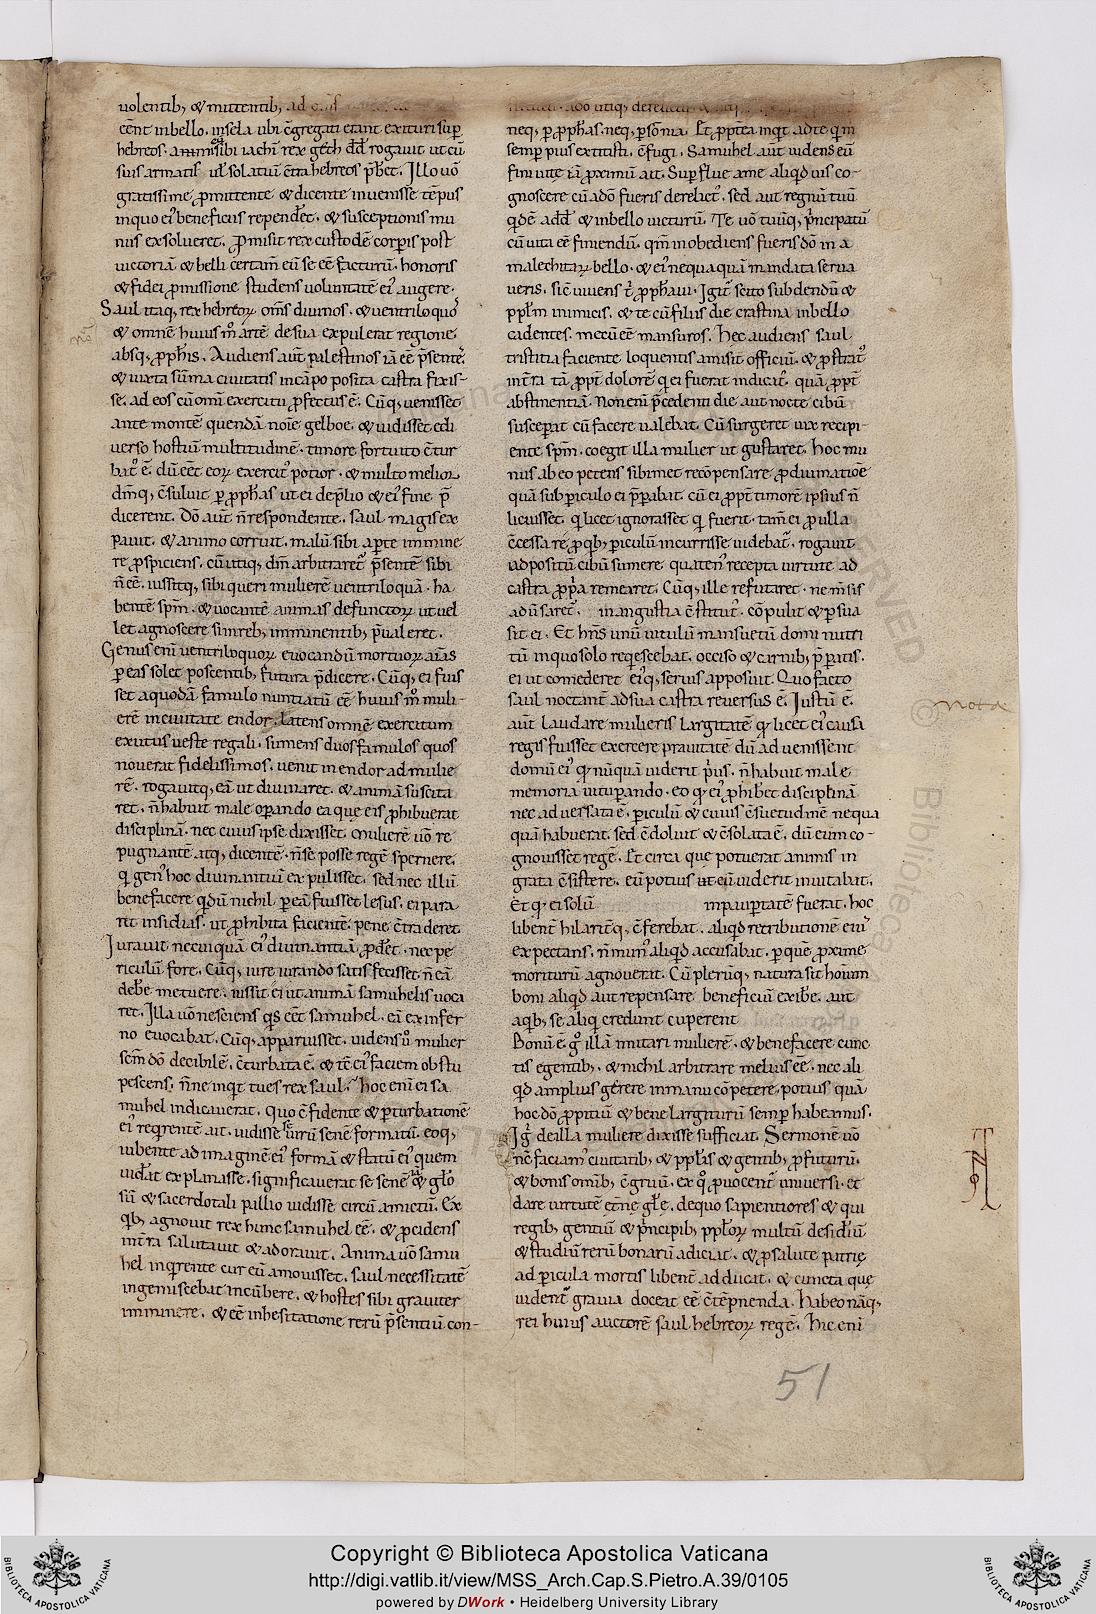 uolentib; & mittentib; ad
cẽnt in bello. in sela ubi c̃gregati erant exituri sup̱
hebreos. a mmonsibi iachin rex geth dd̃ rogauit ut cũ
suis armatis ul̃ solatiũ c̃tra hebreos p̃bet. Illo uõ
gratissime p̱mittente & dicente inuenisse tẽpus
in quo ei᷒ beneficus rependet̃. & susceptionis mu
nus exsolueret. P̱misit rex custodẽ corp̱is post
uictoriã & belli certam̃ eũ se eẽ facturũ. honoris
& fidei p̱missione studens uoluntatẽ ei᷒ augere.
Saul itaq; rex hebreoꝝ om̃s diuinos. & uentriloquos᷒
& omnẽ huius m̊ artẽ de sua expulerat regione.
absq; p̱phetis. Audiens aut̃ palestinos iã eẽ p̃sentes᷒.
& iuxta sũma ciuitatis in cãpo posita castra fixis-
se. ad eos cũ om̃i exercitu p̱fectus ẽ. Cũq; uenisset
ante montẽ quendã noĩe gelboe. & uidisset edi
uerso hostiũ multitudinẽ. timore fortuito c̃tur
bat᷒ ẽ. dũ eẽt eoꝝ exercit᷒ potior. & multo melior
dm̃q; c̃suluit p̱ p̱phetas ut ei de p̃lio & ei᷒ fine. p̃
dicerent. Dõ aut̃ ñ respondente. saul magis ex
pauit. & animo corruit. malũ sibi ap̱te immine
re p̱spiciens. cũ utiq; dm̃ arbitraret᷒ p̃sentẽ sibi
ñ eẽ. iussitq; sibi queri mulierẽ uentriloquã. ha
bentẽ spm̃. & uocantẽ animas defunctoꝝ ut uel
let agnoscere si in reb; imminentib; p̃ualeret.
Genus eni uentriloquoꝝ euocandũ mortuoꝝ aĩas
p̱ eas solet poscentib; futura p̃dicere. Cũq; ei fuis
set a quodã famulo nuntiatũ eẽ huius m̊ muli-
erẽ in ciuitate endor. latens omnẽ exercitum
exutus ueste regali. sumens duos famulos quos
nouerat fidelissimos. uenit in endor ad mulie
rẽ. rogauitq; eã ut diuinaret. & animã suscita
ret. ñ habuit male op̱ando ea que eis p̱hibuerat
disciplinã. nec cuius ipse dixisset. Mulierẽ uõ re
pugnantẽ atq; dicentẽ. ñ se posse regẽ spernere.
qi gen᷒ hoc diuinantiũ expulisset. sed nec illũ
benefacere q̃dũ nichil p̱ eã fuisset lesus. ei para
ret insidias. ut p̱hibita facientẽ. pene c̃traderet.
Iurauit nec in quã ei᷒ diuinantiã p̱det̃. nec pe
riculũ fore. Cũq; iure iurando satis fecisset ñ eã
debẽ metuere. iussit ei ut animã samuhelis uoca
ret. Illa uõ nesciens qs̃ eẽt samuhel. eũ ex infer
no euocabat. Cũq; apparuisset. uidens u᷒ mulier
sem̃ dõ decibilẽ. c̃turbata ẽ. & tẽ ei᷒ faciem obstu
pescens. ñne inqt tu es rex saul? hoc eni ei sa
muhel indicauerat. quo c̃fidente & p̱turbationẽ
ei᷒ reqrentẽ ait. uidisse se uirũ senẽ formatũ. eoq;
iubente ad imaginẽ ei᷒ formã & statũ ei᷒ quem
uidãt explanasse. significauerat se senẽ quidẽ & glo᷒
sũ & sacerdotali pallio uidisse circũ amictũ. Ex
qb; agnouit rex hunc samuhel eẽ. & p̱cidens
in t̃ra salutauit & adorauit. Anima uõ samu
hel inqrente cur eũ amouisset. saul necessitatẽ
ingemiscebat incũbere. & hostes sibi grauiter
imminere. & eẽ in hesitatione rerũ p̃sentiũ con-
neq; p̱ p̱phetas. neq; p̱ sõnia. Et p̱ptea inqt ad te qm̃
semp̱ pius extitisti. c̃fugi. Samuhel aut̃ uidens eũ
fini uitę iã p̱ximũ ait. Sup̱flue a me aliqd uis co-
gnoscere cũ a dõ fueris derelict᷒. sed aut regnũ tuũ
q̃dẽ a dd̃ & in bello uicturũ. Te uõ tuũq; p̃ncipatũ
cũ uita eẽ finiendũ. qm̃ inobediens fueris dõ in a
malechitaꝝ bello. & ei᷒ nequaquã mandata serua
ueris. sic̃ uiuens t̃ p̱phetaui. Igit̃ scito subdendũ &
pplm̃ inimicis. & te cũ filiis die crastina in bello
cadentes. mecũ eẽ mansuros. Hęc audiens saul
tristitia faciente loquentis amisit officiũ. & p̱strat᷒
in t̃ra tã p̱pt̃ dolorẽ qi ei fuerat indicat᷒. quã p̱pt̃
abstinentiã. Non eni p̃cedenti die aut nocte cibũ
suscep̱at cũ facere ualebat. Cũ surgeret uix recipi-
ente spm̃. coegit illa mulier ut gustaret. hoc mu
nus ab eo petens sibimet recõpensare p̱ diuinatiõe
quã sub p̱iculo ei p̃parabat. cũ ei p̱pt̃ timorẽ ipsius ñ
licuisset. qi licet ignorasset qi fuerit. tam̃ ei p̱ ulla
c̃cessa re p̱ qb; p̱iculũ incurrisse uidebat᷒. rogauit
ad positũ cibũ sumere quaten᷒ recepta uirtute ad
castra p̱p̃a remearet. Cũq; ille refutaret. ne m̃sis
adũsaret᷒. in angustia c̃stitut᷒. cõpulit & p̱sua
sit ei. Et hñs unũ uitulũ mansuetũ domi nutri
tũ in quo solo reqescebat. occiso & carnib; p̃paratis.
ei ut comederet ei᷒q; seruis apposuit. Quo facto
saul noctant̃ ad sua castra reuersus ẽ. Iustũ ẽ.
aut̃ laudare mulieris largitatẽ qi licet ei᷒ causa
regis fuisset exercere prauitatẽ dũ aduenissent
domũ ei᷒ qi nũquã uiderit p̃us. ñ habuit male
memoria uitup̱ando. eo qi ei᷒ p̱hibet disciplinã
nec aduersata ẽ. p̱iculũ & cuius c̃suetudinẽ nequa
quã habuerat. sed c̃doluit & c̃solata ẽ. dũ eum co-
gnouisset regẽ. Et circa que potuerat animis in
grata c̃sistere. eũ potius ut cũ uiderit inuitabat.
Et qi ei solũ in paup̱tatẽ fuerat. hoc
libent̃ hilarit̃q; c̃ferebat. aliqd retributionẽ eius᷒
expectans. ñ mun᷒ aliqd accusabat. p̱ quẽ p̱xime
moriturũ agnouerat. Cũ plerũq; natura sit hominũ
boni aliqd aut repensare beneficiũ exibẽ. aut
a qb; se aliqi credunt cuperent
Bonũ ẽ g̊ illã imitari mulierẽ. & benefacere cunc
tis egentib;. & nichil arbitrare melius eẽ. nec ali
qd amplius gerere in manu cõpetere. potius quã
hoc dõ p̱pitiũ & bene largiturũ semp̱ habeamus.
Ig̃ de illa muliere dixisse sufficiat. Sermonẽ uõ
nc̃ faciam᷒ ciuitatib; & pplis & gentib; p̱futurũ.
& bonis omĩb; c̃gruũ. ex qo p̱uocent᷒ uniuersi. et
dare uirtutẽ et̃nę glę. de quo sapientiores & qui
regib; gentiũ & p̃ncipib; pploꝝ multũ desideriũ
& studiũ rerũ bonarũ adiciat. & p̱ salute patrię
ad p̱icula mortis libent̃ adducat. & cuncta que
uident᷒ grauia doceat eẽ c̃tẽpnenda. Habeo nãq;
rei huius auctorẽ saul hebreoꝝ regẽ. Hic eni
nota
51
Copyright © Biblioteca Apostolica Vaticana
http://digi.vatlib.it/view/MSS_Arch.Cap.S.Pietro.A.39/0105
powered by DWork • Heidelberg University Library